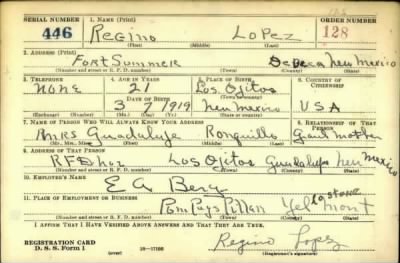 SERIAL NUMBER 1. NAME (Print) ORDER NUMBER
446 Regino Lopez 128
(First) (Middle) (Last)
2. ADDRESS (Print)
Fort Sumner De Baca New Mexico
(Number and street or R. F. D. number) (Town) (County) (State)
3. TELEPHONE 4. AGE IN YEARS 5. PLACE OF BIRTH 6. COUNTRY OF CITIZENSHIP
None 21 Los Ojitos
(Town or county)
DATE OF BIRTH
3 7 1919 New Mexico USA
(Exchange) (Number) (Mo.) (Day) (Yr.) (State or country)
7. NAME OF PERSON WHO WILL ALWAYS KNOW YOUR ADDRESS 8. RELATIONSHIP OF THAT PERSON
Mrs Guadalupe Ronquillo Grant mother
(Mr., Mrs., Miss) (First) (Middle) (Last)
9. ADDRESS OF THAT PERSON
RFD Los Ojitos Guadalupe New Mexico
(Number and street or R. F. D. number) (Town) (County) (State)
10. EMPLOYER'S NAME
E A Berg
11. PLACE OF EMPLOYMENT OR BUSINESS
Pompays Pillar Yellostone Mont
(Number and street or R. F. D. number) (Town) (County) (State)
I AFFIRM THAT I HAVE VERIFIED ABOVE ANSWERS AND THAT THEY ARE TRUE.
REGISTRATION CARD
D. S. S. Form 1 Regino Lopez
(Registrant's signature)